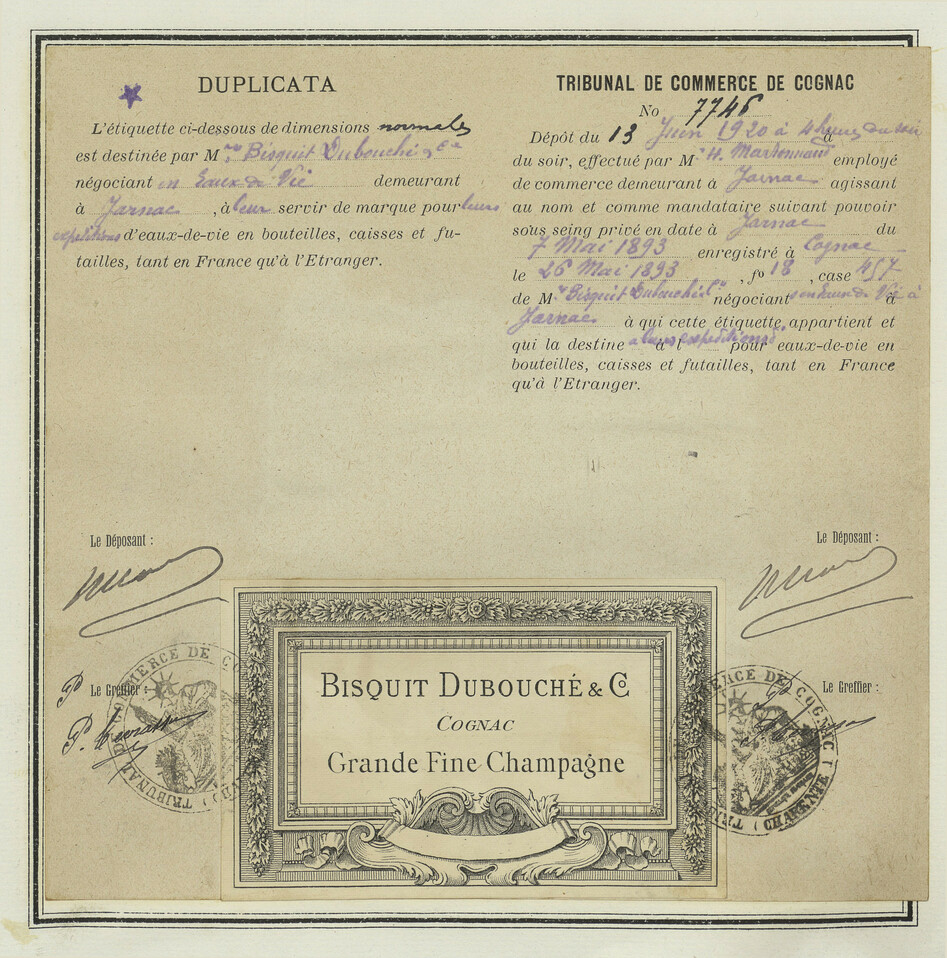 DUPLICATA
L'étiquette ci-dessous de dimensions normales
est destinée par M Bisquit Dubouché & Cie
négociant en Eaux de Vie demeurant
à Jarnac , à leur servir de marque pour leurs
expéditions d'eaux-de-vie en bouteilles, caisses et fu-
tailles, tant en France qu'à l'Etranger.
TRIBUNAL DE COMMERCE DE COGNAC
No 7746
Dépôt du 13 Juin 1920 à 4 heures du soir à
du soir, effectué par M H. employé
de commerce demeurant à Jarnac agissant
au nom et comme mandataire suivant pouvoir
sous seing privé en date à Jarnac du
7 Mai 1893 enregistré à Cognac
le 26 Mai 1893 , fo 18 , case 457
de M Bisquit Dubouché négociants en Eaux de Vie à
Jarnac à qui cette étiquette appartient et
qui la destine à leurs expéditions d' à l' pour eaux-de-vie en
bouteilles, caisses et futailles, tant en France
qu'à l'Etranger.
Le Déposant :
Le Déposant :
Le Greffier :
Le Greffier :
TRIBUNAL DE COMMERCE DE CO
COMMERCE DE COGNAC
TRI
(CHARENTE)
BISQUIT DUBOUCHÉ & Co
COGNAC
Grande Fine Champagne